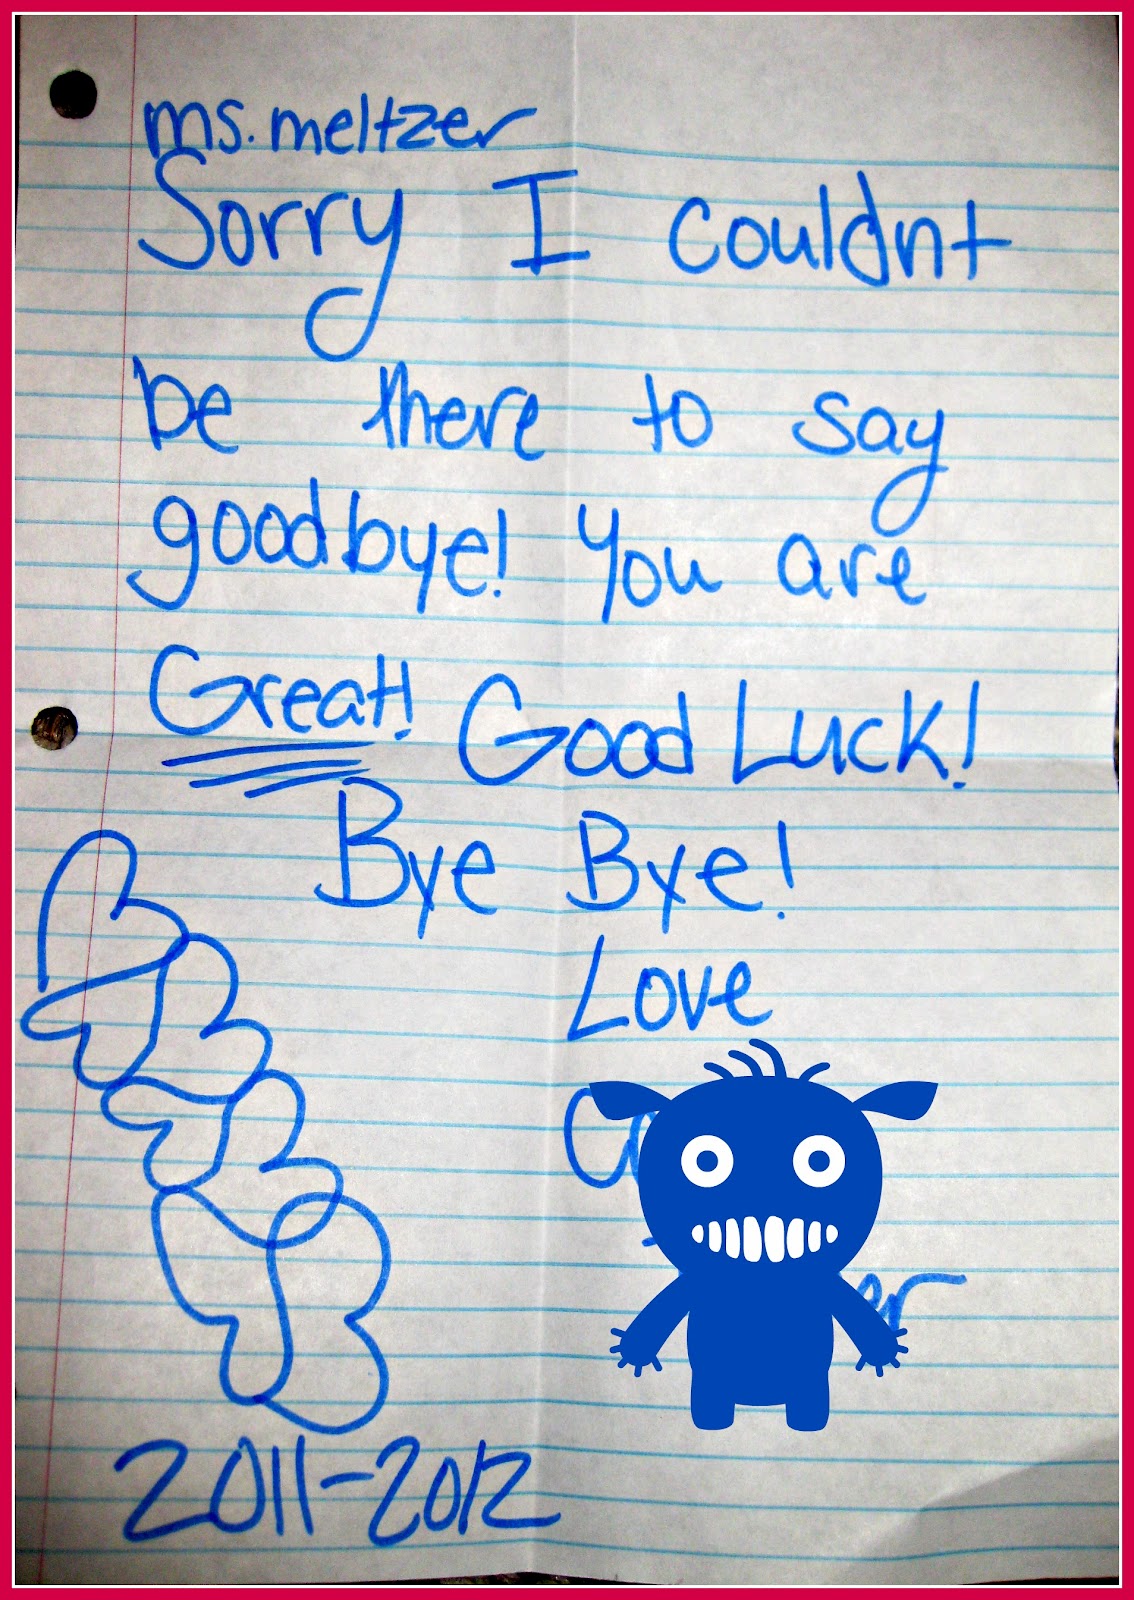 ms. meltzer
Sorry I couldnt
be there to say
goodbye! You are
Great! Good Luck!
Bye Bye!
Love
2011-2012